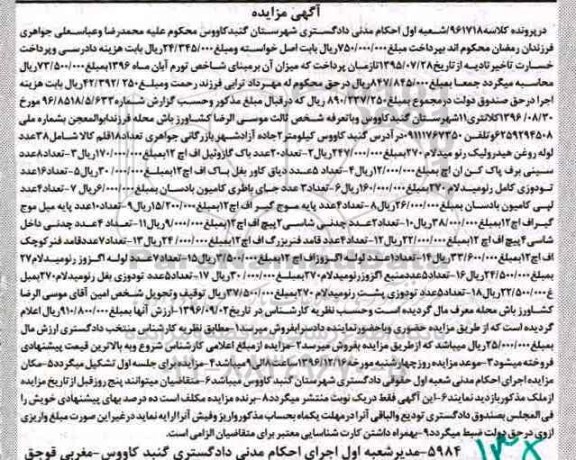 آگهی مزایده
درپرونده کلاسه ۹۶۱۷۱۸/شعبه اول احکام مدنی دادگستری شهرستان گنبدکاووس محکوم علیه محمدرضا وعباسعلی جواهری
فرزندان رمضان محکوم اند بپرداخت مبلغ ۷۵۰/۰۰۰/۰۰۰ریال بابت اصل خواسته ومبلغ ۲۴/۳۴۵/۰۰۰ریال بابت هزینه دادرسی وپرداخت
خسارت تاخیر تادیه از تاریخ ۱۳۹۵/۰۷/۲۸تازمان پرداخت که میزان آن برمبنای شاخص تورم آبان ماه ۱۳۹۶بمبلغ ۷۳/۵۰۰/۰۰۰ریال
محاسبه میگردد جمعا بمبلغ ۸۴۷/۸۴۵/۰۰۰ریال درحق محکوم له مهرداد ترابی فرزند رحمت ومبلغ ۴۲/۳۹۲/۲۵۰ریال بابت هزینه
اجرا درحق صندوق دولت درمجموع بمبلغ ۸۹۰/۲۳۷/۲۵۰ ریال که درقبال مبلغ مذکور وحسب گزارش شماره ۹۶/۸۵۱۸/۵/۶۳۳ مورخ
۱۳۹۶/۰۸/۳۰ کلانتری ۱۱شهرستان گنبد کاووس وباتعرفه شخص ثالث موسی الرضا کشاورز باش محله فرزند ابوالمعجن بشماره ملی
۶۲۵۹۲۹۴۵۰۸ وتلفن ۰۹۱۱۱۷۶۷۳۵۰ درآدرس گنبد کاووس کیلومتر ۲جاده آزادشهر بازرگانی جواهری تعداد ۱۸قلم کالا شامل ۳۸عدد
لوله روغن هیدرولیک رنو میدلام ۲۷۰بمبلغ ۲۴۷/۰۰۰/۰۰۰ریال ۲-تعداد ۲۰عدد باک گازوئیل اف اچ ۱۲بمبلغ ۱۷۰/۰۰۰/۰۰۰ریال ۳-تعداد ۸عدد
سینی برف پاک کن ان اچ بمبلغ ۱۲/۰۰۰/۰۰۰ریال ۴-تعداد ۵عدد دیاق کاور بغل باک اف اچ ۱۲بمبلغ ۳۰/۰۰۰/۰۰۰ریال ۵-تعداد ۱۶عدد
تودوزی کامل رنومیدلام ۲۷۰ بمبلغ ۱۶۰/۰۰۰/۰۰۰ریال ۶-تعداد ۳ عدد جای باطری کامیون بادسان بمبلغ ۶/۰۰۰/۰۰۰ریال ۷-تعداد ۴عدد
لپی کامیون بادسان بمبلغ ۲۶/۰۰۰/۰۰۰ریال ۸-تعداد ۴عدد پایه موج گیر اف اچ ۱۲بمبلغ ۱۵/۲۰۰/۰۰۰ریال ۹-تعداد ۱۰عدد پایه میل موج
گیر اف اچ ۱۲بمبلغ ۳۸/۰۰۰/۰۰۰ریال ۱۰-تعداد ۲عدد چدنی شاسی ۲پیچ اف اچ ۱۲بمبلغ ۹/۰۰۰/۰۰۰ریال ۱۱-تعداد ۴عدد چدنی داخل
شاسی ۴پیچ اف اچ ۱۲بمبلغ ۲۲/۰۰۰/۰۰۰ریال ۱۲-تعداد ۴عدد قامد فنربزرگ اف اچ ۱۲بمبلغ ۲۴/۰۰۰/۰۰۰ریال ۱۳-تعداد ۷عدد قامد فنر کوچک
اف اچ ۱۲بمبلغ ۳۳/۶۰۰/۰۰۰ریال ۱۴-تعداد ۱عدد لوله اگزوز اف اچ ۱۲بمبلغ ۳/۵۰۰/۰۰۰ریال ۱۵-تعداد ۷عدد لوله اگزوز رنومیدلام ۲۷۰
بمبلغ ۲۴/۵۰۰/۰۰۰ریال ۱۶-تعداد ۵عدد منبع اگزوز رنومیدلام ۲۷۰بمبلغ ۳۰/۰۰۰/۰۰۰ ریال ۱۷-تعداد ۵عدد تودوزی بغل رنومیدلام ۲۷۰بمبل
غ ۲۲/۵۰۰/۰۰۰ریال ۱۸-تعداد ۵عدد تودوزی پشت رنومیدلام ۲۷۰ بمبلغ ۳۷/۵۰۰/۰۰۰ریال توقیف وتحویل شخص امین آقای موسی الرضا
کشاورز باش محله معرف مال گردیده است وحسب نظریه کارشناس در تاریخ ۱۳۹۶/۰۹/۰۲ ارزش آنها بمبلغ ۹۱۰/۸۰۰/۰۰۰ریال اعلام
گردیده است که از طریق مزایده حضوری وباحضور نماینده دادسرا بفروش میرسد ۱-مطابق نظریه کارشناس منتخب دادگستری ارزش مال
بمبلغ ۲۵/۰۰۰/۰۰۰ریال میباشد که ازطریق مزایده بفروش میرسد ۲-مزایده از مبلغ اعلامی کارشناس شروع وبه بالاترین قیمت پیشنهادی
فروخته میشود ۳-موعد مزایده روز چهارشنبه مورخه ۱۳۹۶/۱۲/۱۶ساعت میباشد ۴-مزایده برای جلسه اول تشکیل میگردد ۵-مکان
مزایده اجرای احکام مدنی شعبه اول حقوقی دادگستری شهرستان گنبد کاووس میباشد ۶-متقاضیان میتوانند پنج روز قبل از تاریخ مزایده
از ملک مذکور بازدید نمایند ۷-این آگهی فقط دریک نوبت منتشر میگردد ۸-برنده مزایده مکلف است ده درصد بهای پیشنهادی خویش را
فی المجلس بصندوق دادگستری تودیع والباقی آنرا درمهلت یکماه بحساب مذکور واریز وفیش آنرا ارایه نماید درغیر این صورت مبلغ واریزی
از وی درحق دولت ضبط میگردد ۹-بهمراه داشتن کارت شناسایی معتبر برای متقاضیان الزامی است.
۵۹۸۴-مدیرشعبه اول اجرای احکام مدنی دادگستری گنبد کاووس-مغربی قوجق